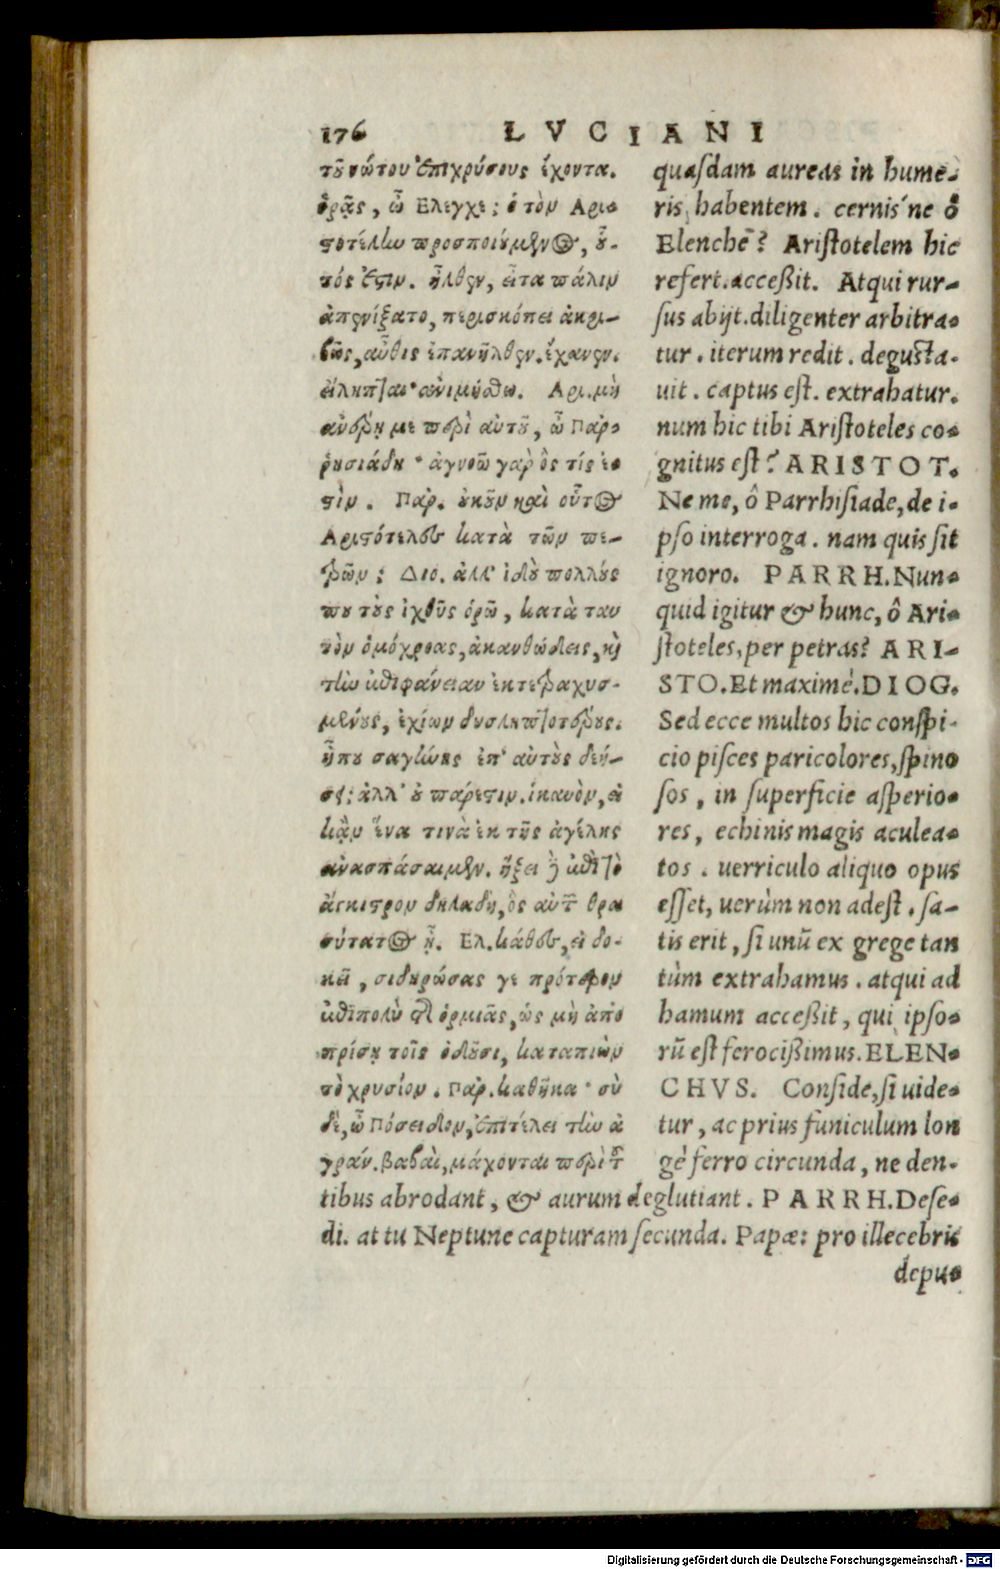 176 LVCIANI
τοῦ νώτου ἐπιχρύσους ἔχοντα.
ὁρᾷς, ὦ Ελεγχε; ὁ τὸν Αρι-
στοτέλην προσποιούμενος, οὗ-
τός ἐστιν. ἦλθεν, εἶτα πάλιν
ἀπενήξατο, περισκόπει ἀκρι-
βῶς, αὖθις ἐπανῆλθεν. ἔχανεν.
εἴληπται· ἀνιμήσθω. Αρι. μὴ
ἀνέρῃ με περὶ αὐτοῦ, ὦ Παρ-
ρησιάδη· ἀγνοῶ γὰρ ὃς τίς ἐ-
στὶν. Παρ. οὐκοῦν καὶ οὗτος
Αριστότελες κατὰ τῶν πε-
τρῶν; Διο. ἀλλ' ἰδοὺ πολλούς
που τοὺς ἰχθῦς ὁρῶ, κατὰ ταυ
τὸν ὁμόχροας, ἀκανθώδεις, καὶ
τὴν ἐπιφάνειαν ἐκτετραχυσ-
μένους, ἐχίνων δυσληπτοτέρους.
ἤπου σαγήνης ἐπ' αὐτοὺς δεή-
σει; ἀλλ' οὐ πάρεστιν. ἱκανὸν, εἰ
κἂν ἕνα τινὰ ἐκ τῆς ἀγέλης
ἀνασπάσαιμεν. ἥξει δὲ ἐπὶ τὸ
ἄγκιστρον δηλαδὴ, ὃς αὐτῶν θρα
σύτατος ᾖ. Ελ. κάθες, εἰ δο-
κεῖ, σιδηρώσας γε πρότερον
ἐπιπολὺ τῆς ὁρμιᾶς, ὡς μὴ ἀπο
πρίσῃ τοῖς ὀδοῦσι, καταπιὼν
τὸ χρυσίον. Παρ. καθῆκα· σὺ
δὲ, ὦ Πόσειδον, ἐπιτέλει τὴν ἄ
γραν. βαβαὶ, μάχονται περὶ τοῦ
quasdam aureas in hume-
ris habentem. cernis'ne ô
Elenche? Aristotelem hic
refert. accessit. Atqui rur-
sus abijt. diligenter arbitra-
tur. iterum redit. degusta-
uit. captus est. extrahatur.
num hic tibi Aristoteles co-
gnitus est? ARISTOT.
Ne me, ô Parrhisiade, de i-
pso interroga. nam quis sit
ignoro. PARRH. Nun-
quid igitur & hunc, ô Ari-
stoteles, per petras? ARI-
STO. Et maximè. DIOG.
Sed ecce multos hic conspi-
cio pisces paricolores, spino
sos, in superficie asperio-
res, echinis magis aculea-
tos. uerriculo aliquo opus
esset, uerùm non adest. sa-
tis erit, si unũ ex grege tan
tùm extrahamus. atqui ad
hamum accessit, qui ipso-
rũ est ferocissimus. ELEN-
CHVS. Conside, si uide-
tur, ac prius funiculum lon
gè ferro circunda, ne den-
tibus abrodant, & aurum deglutiant. PARRH. Dese-
di. at tu Neptune capturam secunda. Papæ: pro illecebris
depu-
Digitalisierung gefördert durch die Deutsche Forschungsgemeinschaft - DFG